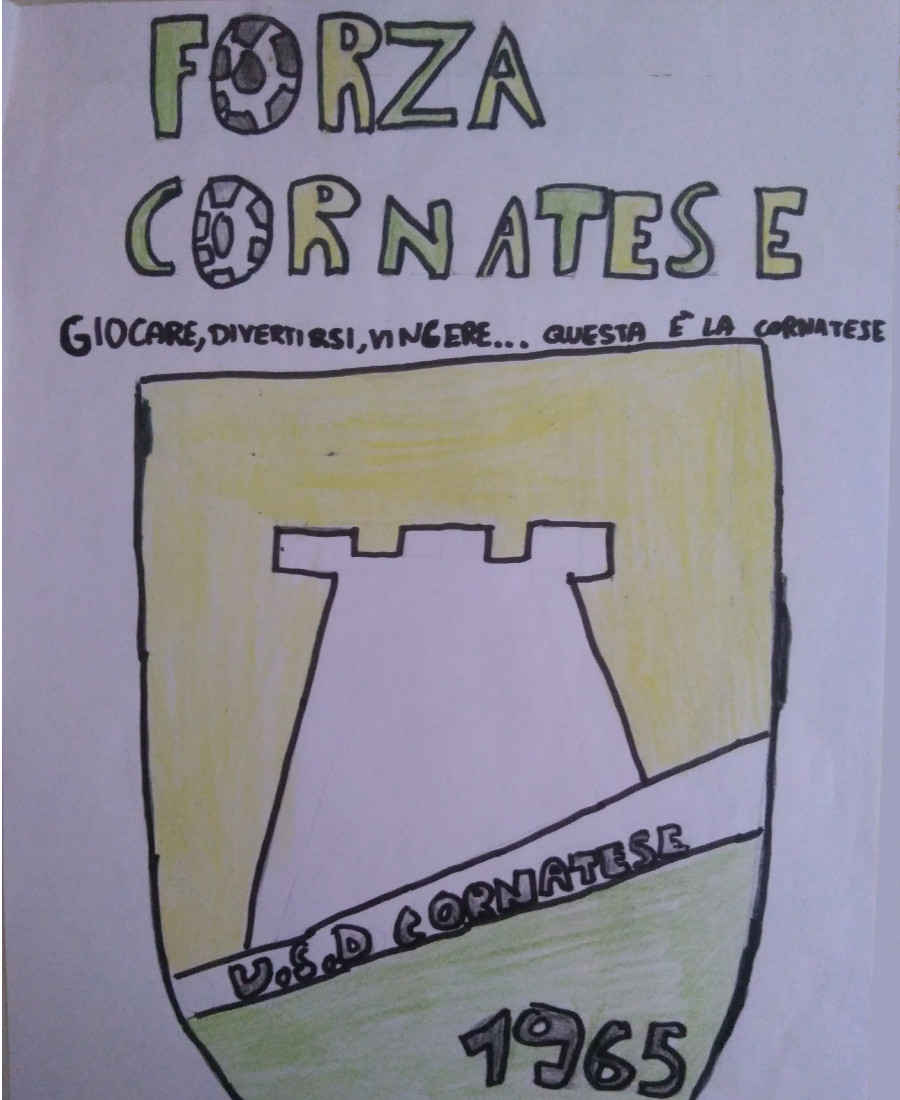 FORZA
CORNATESE
GIOCARE, DIVERTIRSI, VINGERE... QUESTA È LA CORNATESE
U.S.D CORNATESE
1965